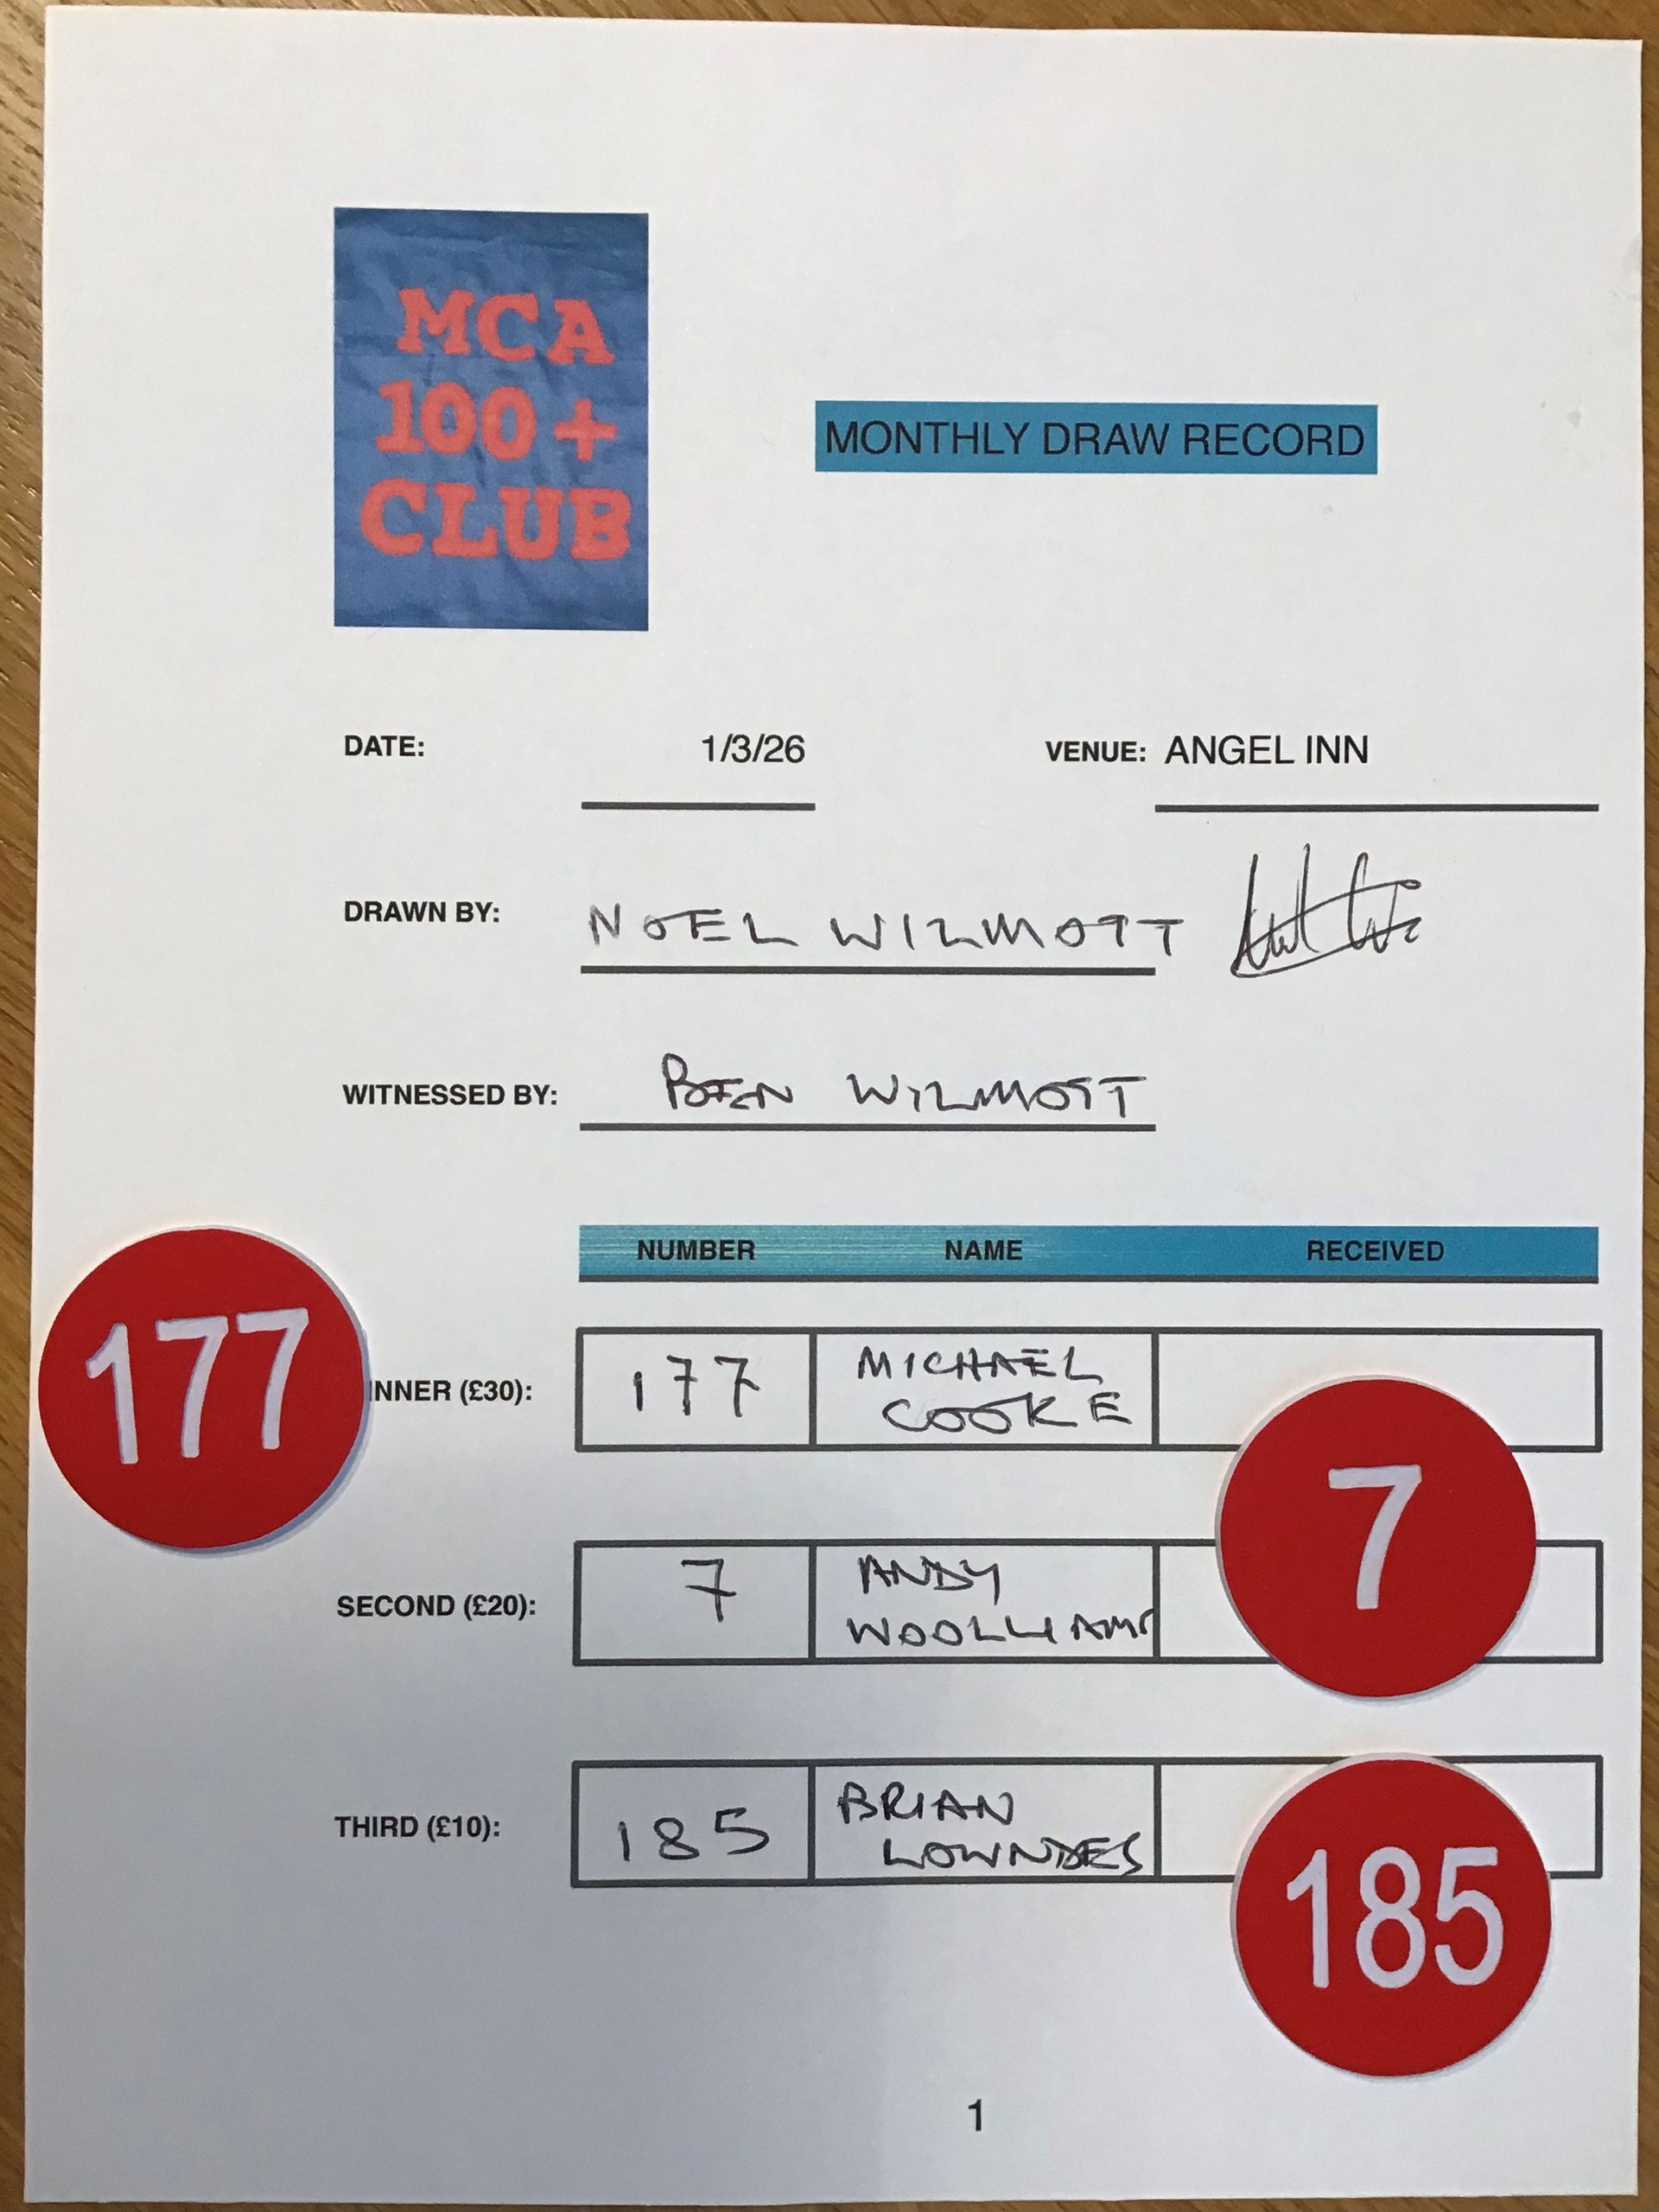 MCA
100+
CLUB
MONTHLY DRAW RECORD
DATE: 1/3/26 VENUE: ANGEL INN
DRAWN BY: NOEL WILMOTT
WITNESSED BY: BEN WILMOTT
NUMBER NAME RECEIVED
177
INNER (£30): 177 MICHAEL
COOKE
7
SECOND (£20): 7 ANDY
WOOLLIAMS
THIRD (£10): 185 BRIAN
LOWNDES
185
1